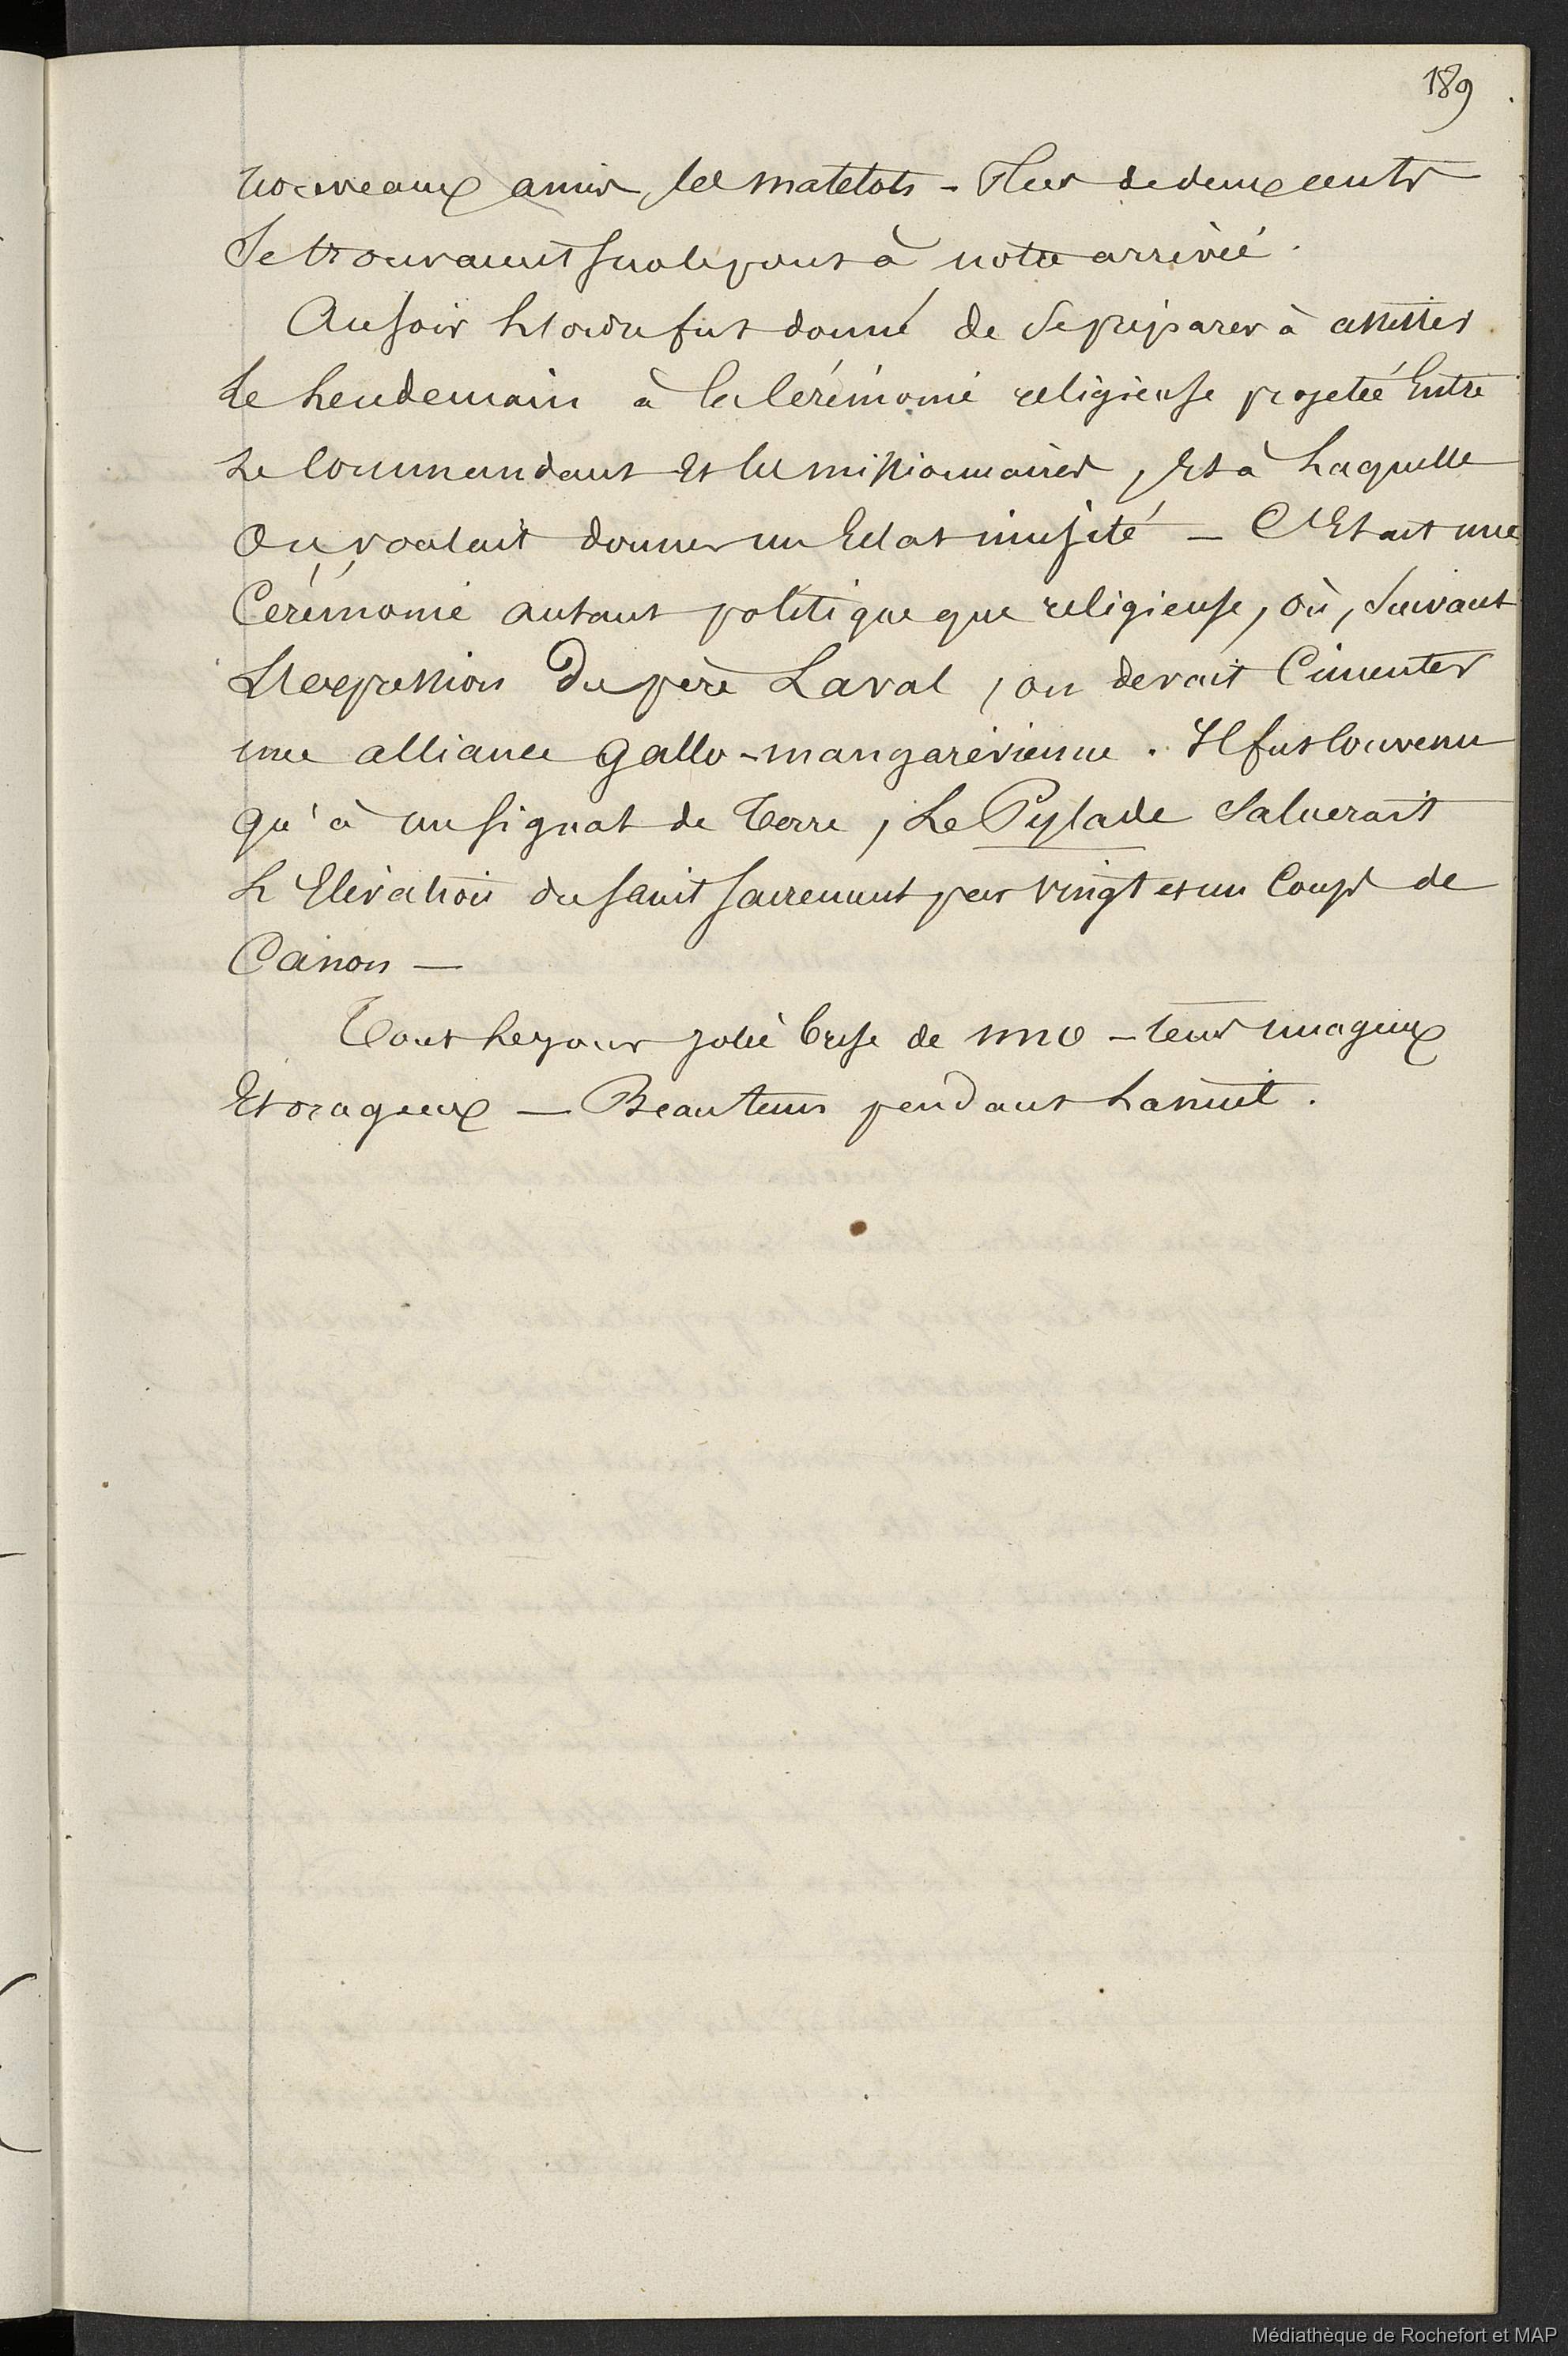 189
nouveaux amis, les matelots - Plus de deux cents
se trouvaient sur le pont à notre arrivée.
Au soir l'ordre fut donné de se préparer à assister
le lendemain à la cérémonie religieuse projetée Entre
le Commandant Et les missionnaires, Et à laquelle
on voulait donner un Eclat inusité - C'Etait une
Cérémonie autant politique que religieuse, où, suivant
L'expression du père Laval, on devait Cimenter
une alliance gallo-mangarévienne. Il fut Convenu
qu'à un signal de Terre, Le Pylade saluerait
L'Elévation du saint sacrement par vingt et un Coups de
Canon -
Tout le jour jolie brise de NNO - tems nuageux
Et orageux - Beau tems pendant la nuit.
Médiathèque de Rochefort et MAP